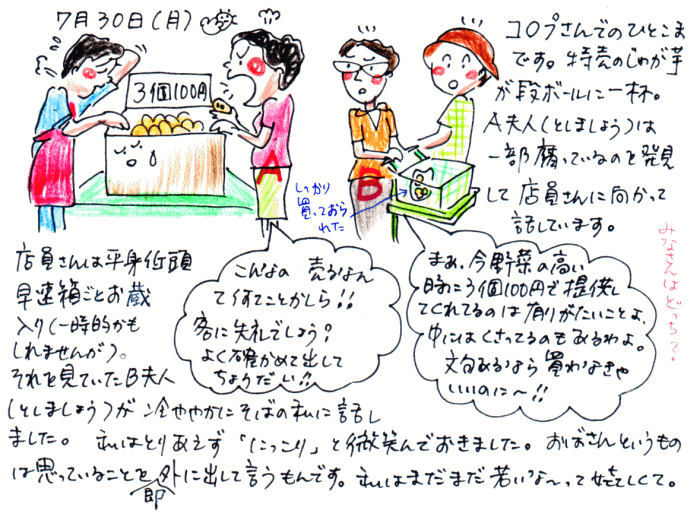 7月30日(月)
コロプさんでのひとこま
です。特売のじゃが芋
が段ボールに一杯。
A夫人(としましょう)は
一部腐っているのを発見
して店員さんに向かって
話しています。
3個100円
A
B
しっかり
買っておら
れた
みなさんはどっち?
こんなの 売るなん
て何てことかしら!!
客に失礼でしょう?
よく確かめて出して
ちょうだい!!
まぁ、今野菜の高い
時に3個100円で提供し
てくれてるのは有りがたいことよ、
中にはくさってるのもあるわよ。
文句あるなら買わなきゃ
いいのに〜!!
店員さんは平身低頭
早速箱ごとお蔵
入り(一時的かも
しれませんが)。
それを見ていたB夫人
(としましょう)が冷ややかにそばの私に話し
ました。私はとりあえず「にっこり」と微笑んでおきました。おばさんというもの
は思っていることを即外に出して言うもんです。私はまだまだ若いな〜って嬉しくて。